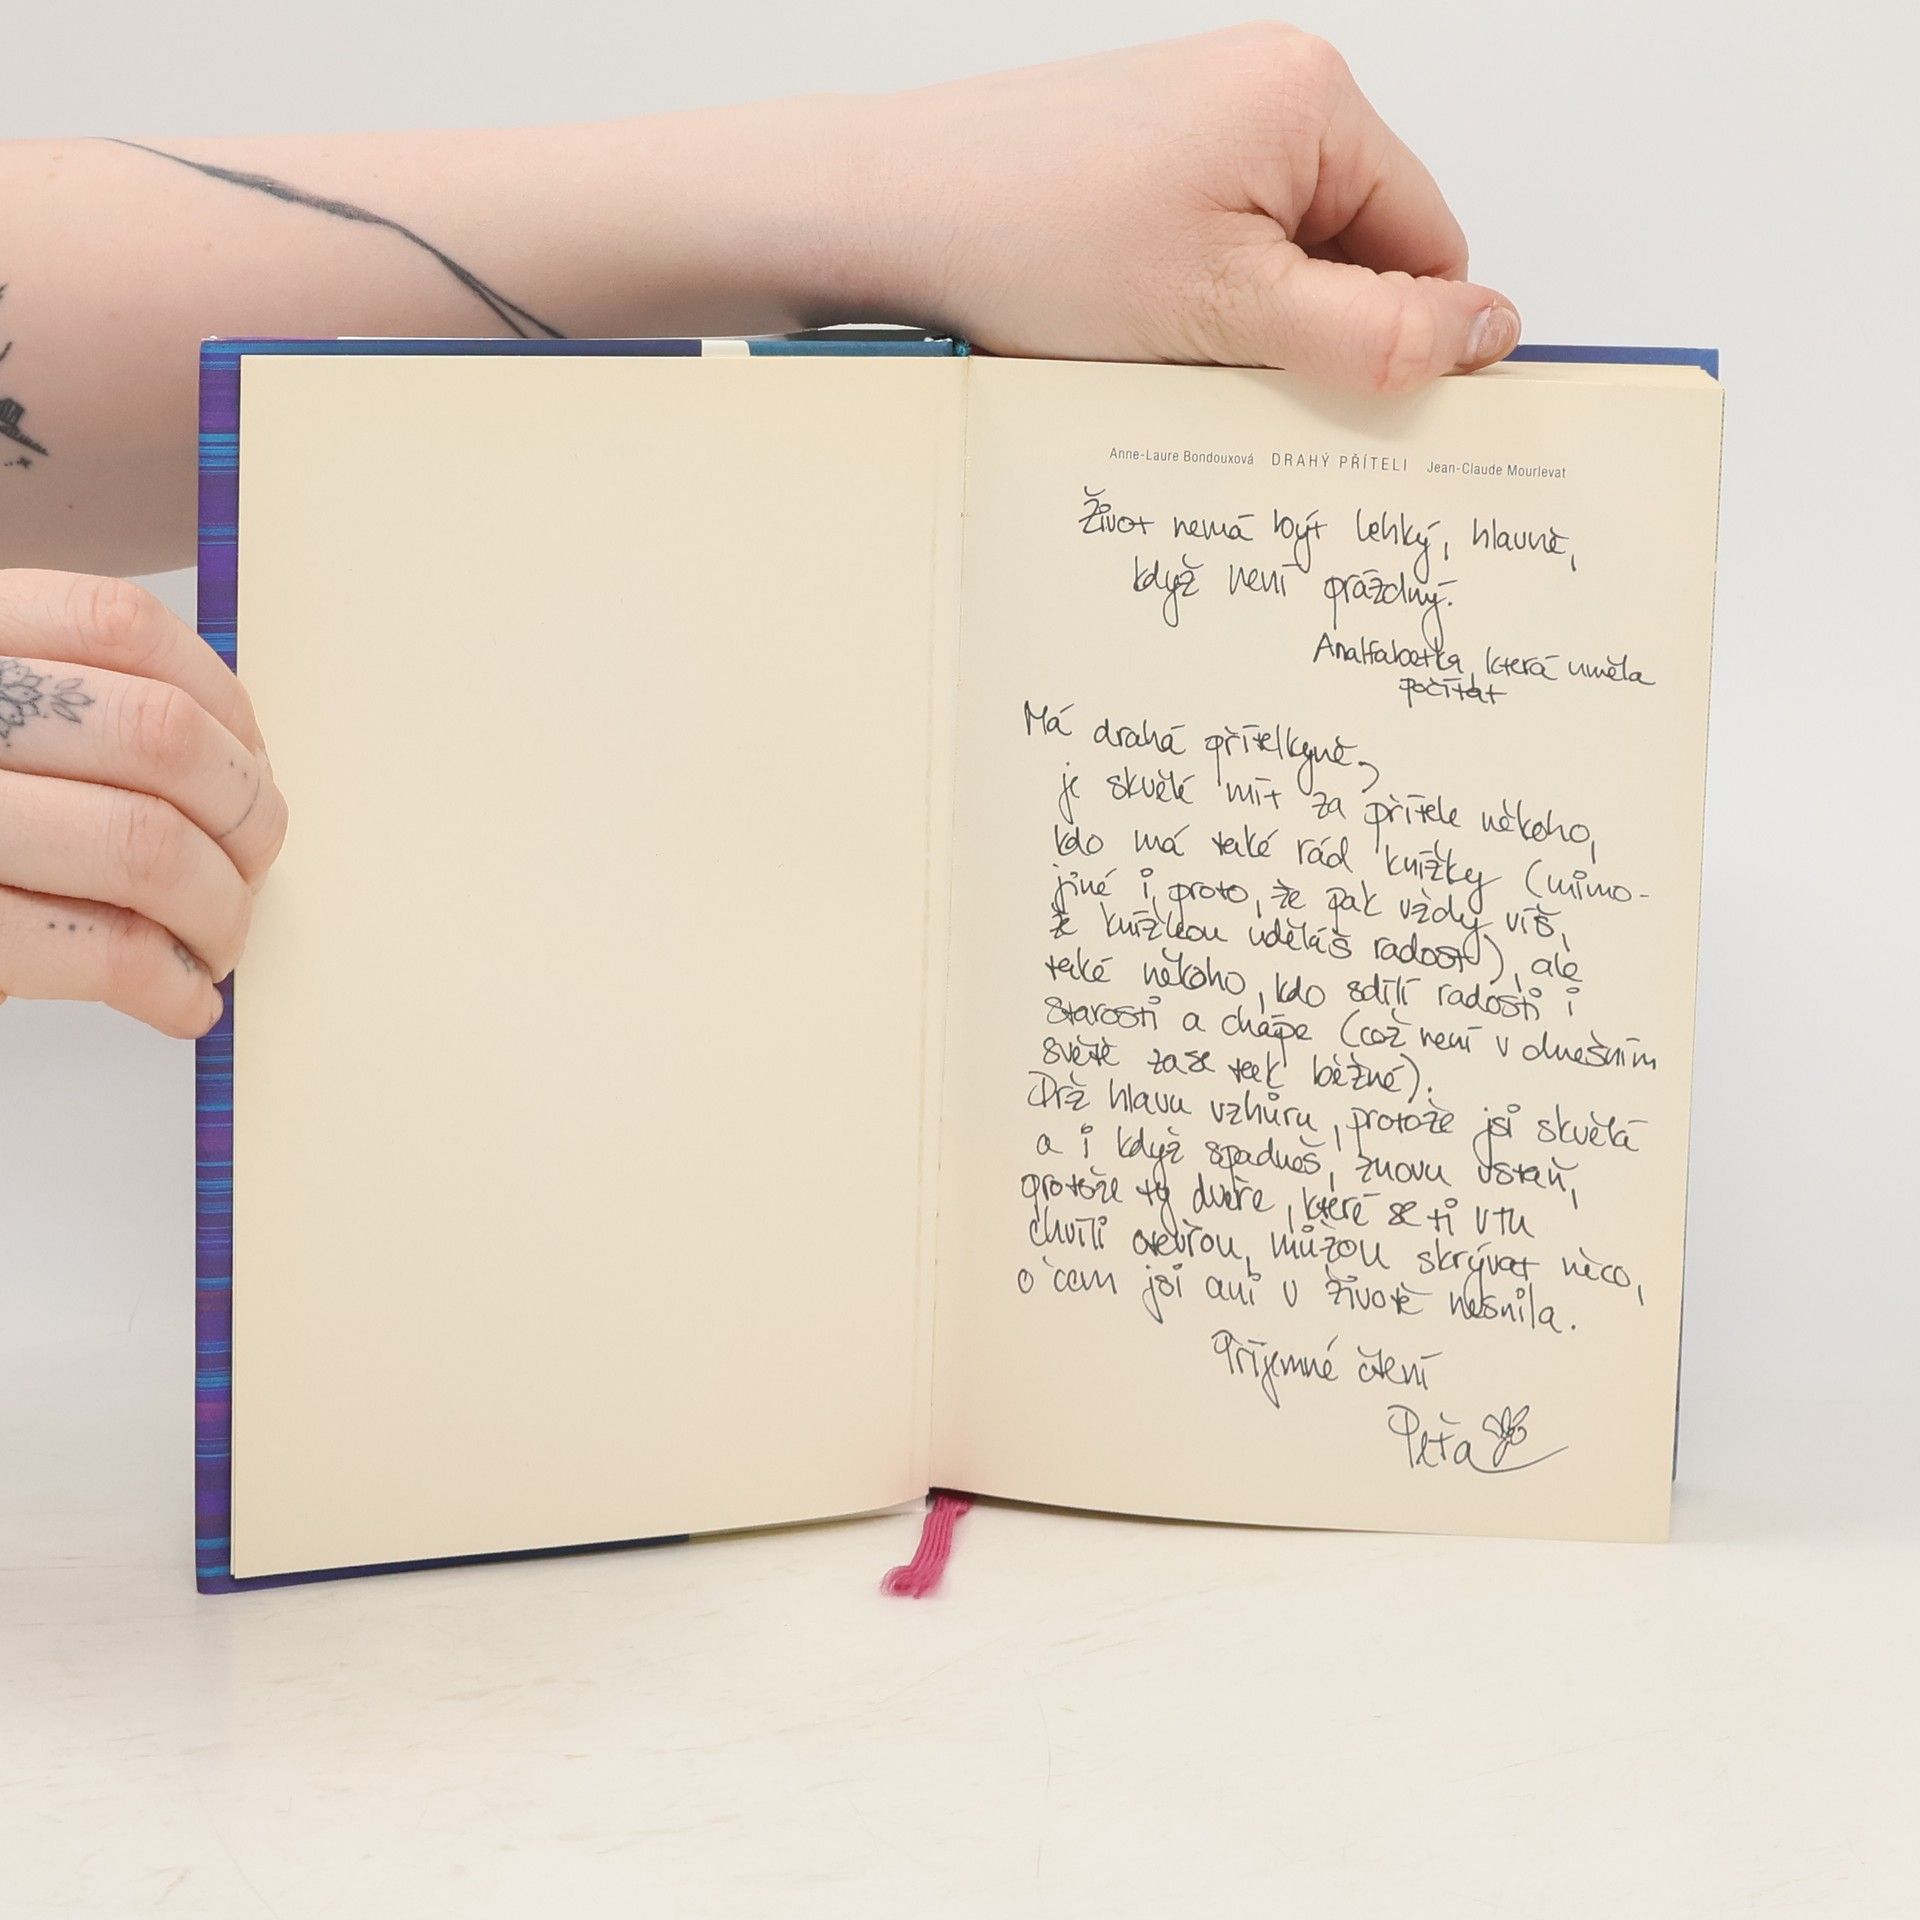 Anne-Laure Bondouxová DRAHÝ PŘÍTELI Jean-Claude Mourlevat
Život nemá být lehký, hlavně,
když není prázdný.
Analfabetka, která uměla
počítat
Má drahá přítelkyně,
je skvělé mít za přítele někoho,
kdo má také rád knížky (mimo-
jiné i proto, že pak vždy víš,
že knížkou uděláš radost), ale
také někoho, kdo sdílí radosti i
starosti a chápe (což není v dnešním
světě zase tak běžné).
Drž hlavu vzhůru, protože jsi skvělá
a i když spadneš, znovu vstaň,
protože ty dveře, které se ti v tu
chvíli otevřou, můžou skrývat něco,
o čem jsi ani v životě nesnila.
Příjemné čtení
Péťa